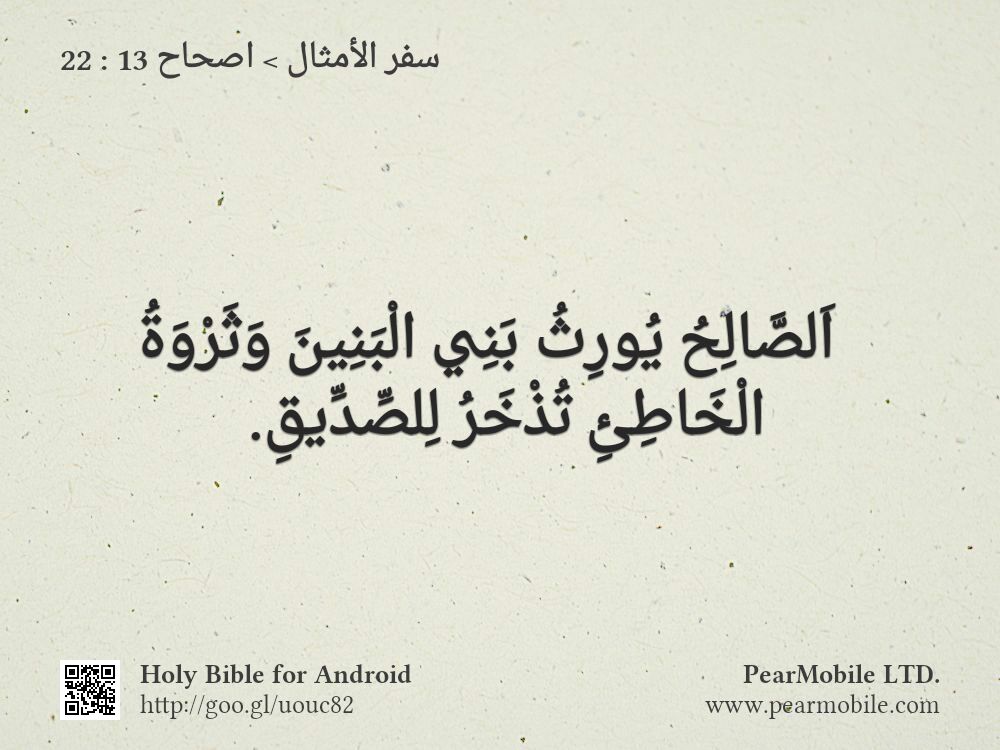 سفر الأمثال > اصحاح 13 : 22
اَلصَّالِحُ يُورِثُ بَنِي الْبَنِينَ وَثَرْوَةُ
الْخَاطِئِ تُذْخَرُ لِلصِّدِّيقِ.
Holy Bible for Android
http://goo.gl/uouc82
PearMobile LTD.
www.pearmobile.com